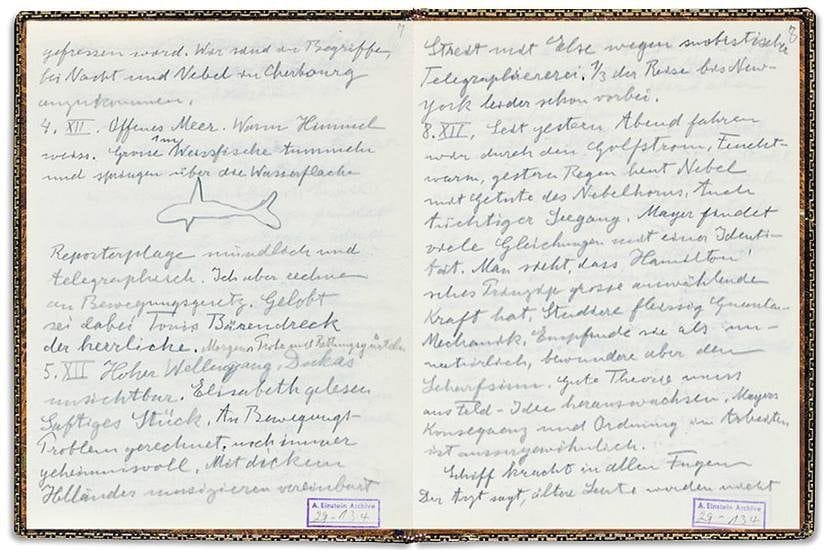 7
gefressen ward. War rand an Begriffe,
bei Nacht und Nebel in Cherbourg
anzukommen.
4. XII. Offenes Meer. Warm Himmel
weiss. Grosse Weissfische tummeln
und springen über die Wasserfläche
Reporterplage mündlich und
telegraphisch. Ich aber rechne
an Bewegungsgesetz. Gelobt
sei dabei Bärendreck
der herrliche. Morgen Probe mit
5. XII Hoher Wellengang. Dukas
unsichtbar. Elisabeth gelesen
Saftiges Stück. An Bewegungs-
Problem gerechnet, noch immer
geheimnisvoll. Mit dickem
Holländer musizieren vereinbart
A. Einstein Archive
29-134
8
Streit mit Else wegen
Telegraphiererei. 1/3 der Reise bis New-
york leider schon vorbei.
8. XII. Seit gestern Abend fahren
wir durch den Golfstrom, Feucht-
warm, gestern Regen heut Nebel
mit Getute des Nebelhorns, Auch
tüchtiger Seegang. Mayer findet
viele Gleichungen mit einer Identi-
tät. Man sieht, dass Hamilton'
sches Prinzip grosse auswählende
Kraft hat. Studiere fleissig Quanten-
Mechanik. Empfinde sie als un-
natürlich, bewundere aber den
Scharfsinn. Gute Theorie muss
aus Feld-Idee herauswachsen. Mayers
Konsequenz und Ordnung im Arbeiten
ist aussergewöhnlich.
Schiff kracht in allen Fugen
Der Arzt sagt, ältere Leute würden nicht
A. Einstein Archive
29-134